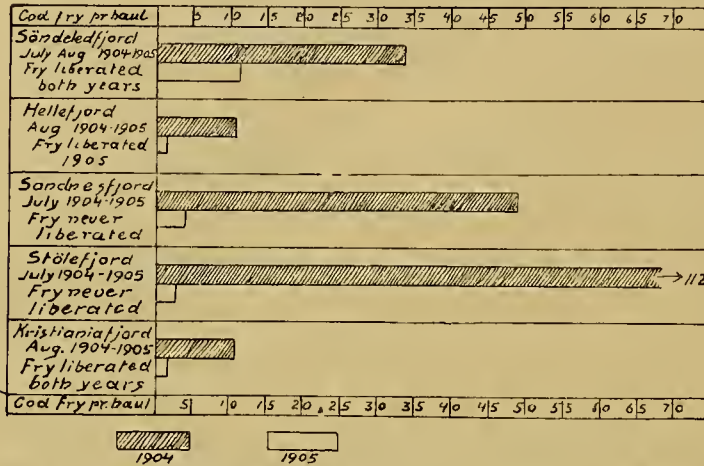 Cod fry pr. haul 5 10 15 20 25 30 35 40 45 50 55 60 65 70
Söndeledfjord
July Aug 1904-1905
Fry liberated
both years
Hellefjord
Aug 1904-1905
Fry liberated
1905
Sandnesfjord
July 1904-1905
Fry never
liberated
Stölefjord
July 1904-1905
→ 112
Fry never
liberated
Kristianiafjord
Aug. 1904-1905
Fry liberated
both years
Cod Fry pr. haul 5 10 15 20 25 30 35 40 45 50 55 60 65 70
1904 1905